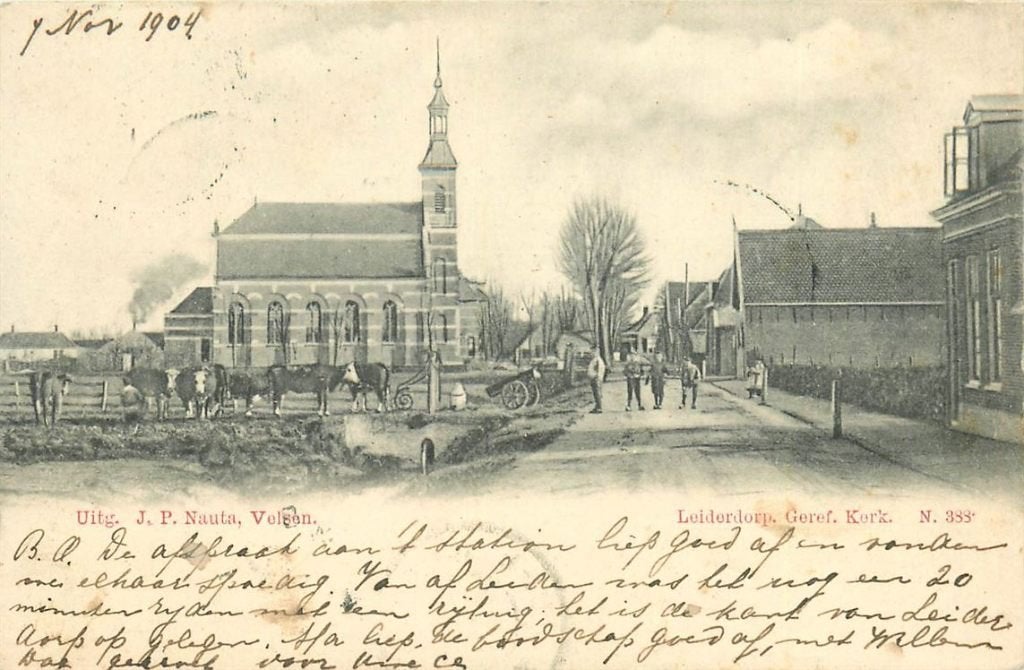 7 Nov 1904
Uitg. J. P. Nauta, Velsen.
Leiderdorp. Geref. Kerk. N. 388
B. A. De afspraak aan 't station liep goed af en vonden
we elkaar spoedig. Van af Leiden was het nog een 20
minuten ryden met een rijtuig, het is de kant van Leider
dorp op gelegen. liep de boodschap goed af, met Willem
voor